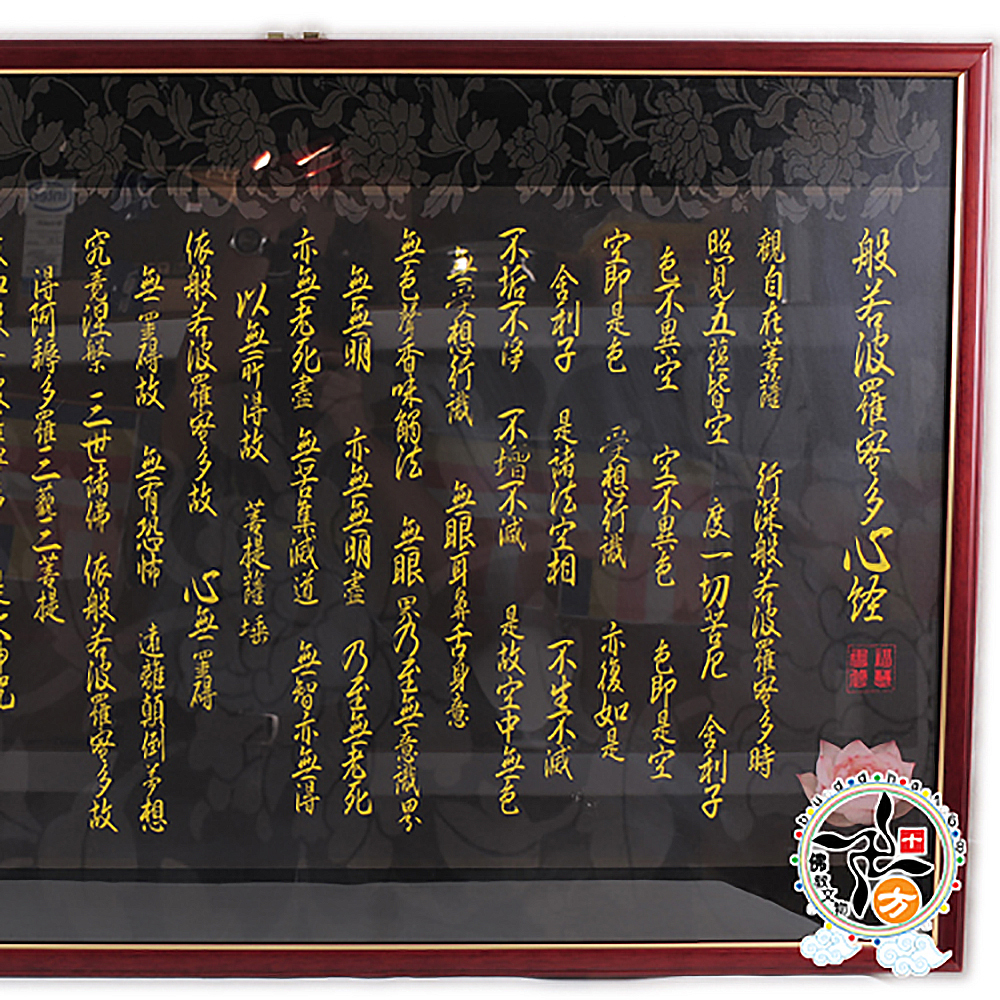 般若波羅蜜多心經
觀自在菩薩 行深般若波羅蜜多時
照見五蘊皆空 度一切苦厄 舍利子
色不異空 空不異色 色即是空
空即是色 受想行識 亦復如是
舍利子 是諸法空相 不生不滅
不垢不淨 不增不減 是故空中無色
無受想行識 無眼耳鼻舌身意
無色聲香味觸法 無眼界乃至無意識界
無無明 亦無無明盡 乃至無老死
亦無老死盡 無苦集滅道 無智亦無得
以無所得故 菩提薩埵
依般若波羅蜜多故 心無罣礙
無罣礙故 無有恐怖 遠離顛倒夢想
究竟涅槃 三世諸佛 依般若波羅蜜多故
得阿耨多羅三藐三菩提
十方
佛教文物